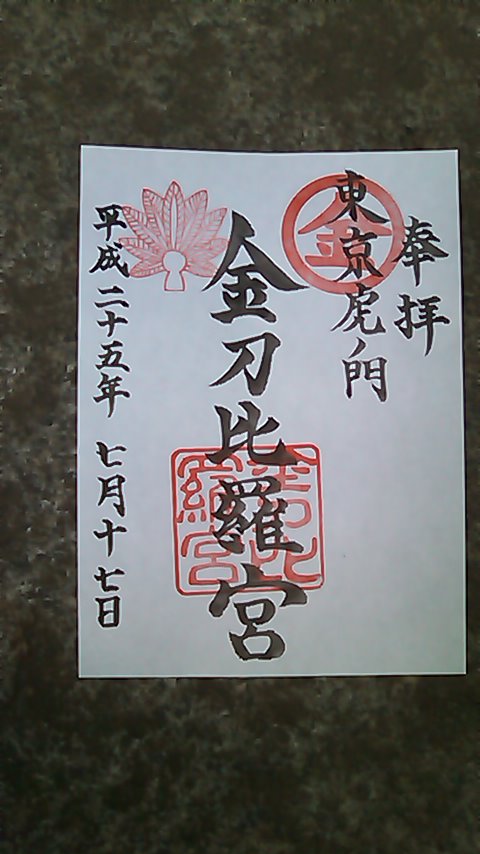 奉拝
東京虎ノ門
金
金刀比羅宮
金刀比羅宮
平成二十五年 七月十七日